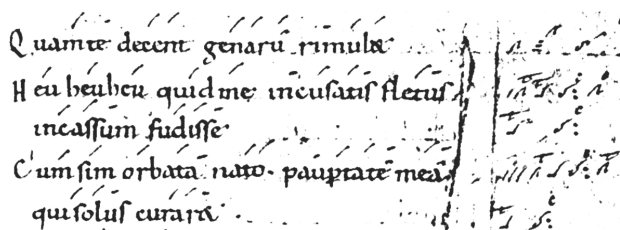 Quam te decent genarū rimulae
Heu heu heu quid me incusatis fletus
incassum fudisse
Cum sim orbata nato · paupertatē meā
qui solus curaret